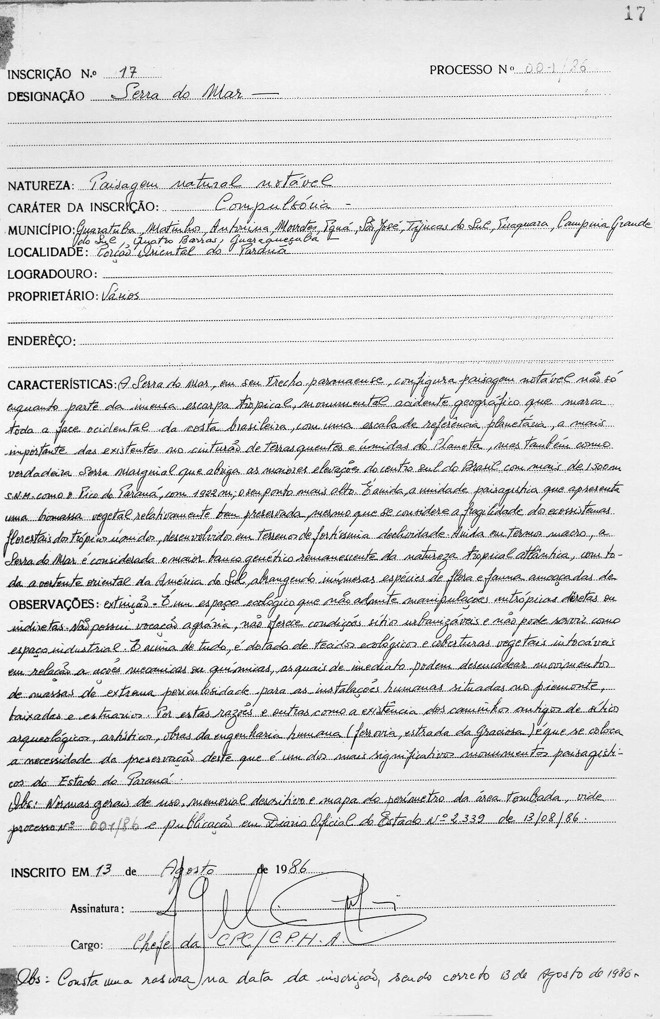 17
INSCRIÇÃO N.º 17 PROCESSO Nº 001/86
DESIGNAÇÃO Serra do Mar —
NATUREZA: Paisagem natural notável
CARÁTER DA INSCRIÇÃO: Compulsória -
MUNICÍPIO: Guaratuba, Matinho, Antonina, Morretes, Pguá, São José, Tijucas do Sul, Piraquara, Campina Grande
do Sul, Quatro Barras, Guaraqueçaba
LOCALIDADE: Porção Oriental do Paraná
LOGRADOURO:
PROPRIETÁRIO: Vários
ENDERÊÇO:
CARACTERÍSTICAS: A Serra do Mar, em seu trecho paranaense, configura paisagem notável não só
enquanto parte da imensa escarpa tropical, monumental acidente geográfico que marca
toda a face ocidental da costa brasileira, com uma escala de referência planetária, a mais
importante das existentes no cinturão de terras quentes e úmidas do Planeta, mas também como
verdadeira Serra marginal que abriga as maiores elevações do centro sul do Brasil com mais de 1.800 m
s.n.m. como o Pico do Paraná, com 1922 m, o seu ponto mais alto. É ainda, a unidade paisagística que apresenta
uma biomassa vegetal relativamente bem preservada, mesmo que se considere a fragilidade do ecossistemas
florestais do trópico úmido, desenvolvido em terreno de fortíssima declividade. Ainda em termo macro, a
Serra do Mar é considerada o maior banco genético remanescente da natureza tropical atlântica, com to-
da a vertente oriental da América do Sul, abrangendo inúmeras espécies de flora e fauna ameaçadas de
OBSERVAÇÕES: extinção. É um espaço ecológico que não admite manipulações antrópicas diretas ou
indiretas. Não possui vocação agrária, não oferece condições sítio urbanizáveis e não pode servir como
espaço industrial. É acima de tudo, é dotado de tecidos ecológicos e coberturas vegetais intocáveis
em relação a ações mecânicas ou químicas, as quais de imediato podem desencadear movimentos
de massas de extrema periculosidade para as instalações humanas situadas no piemonte,
baixadas e estuários. Por estas razões e outras como a existência dos caminhos antigos de sítio
arqueológico, artístico, obras da engenharia humana (ferrovia, estrada da Graciosa) é que se coloca
a necessidade da preservação deste que é um dos mais significativos monumentos paisagísti-
cos do Estado do Paraná.
Obs: Normas gerais de uso, memorial descritivo e mapa do perímetro da área tombada, vide
processo nº 001/86 e publicação em Diário Oficial do Estado Nº 2.339 de 13/08/86.
INSCRITO EM 13 de Agosto de 1986
Assinatura:
Cargo: Chefe da CPC/C.P.H.A.
Obs: Consta uma rasura na data da inscrição, sendo correto 13 de agosto de 1986.